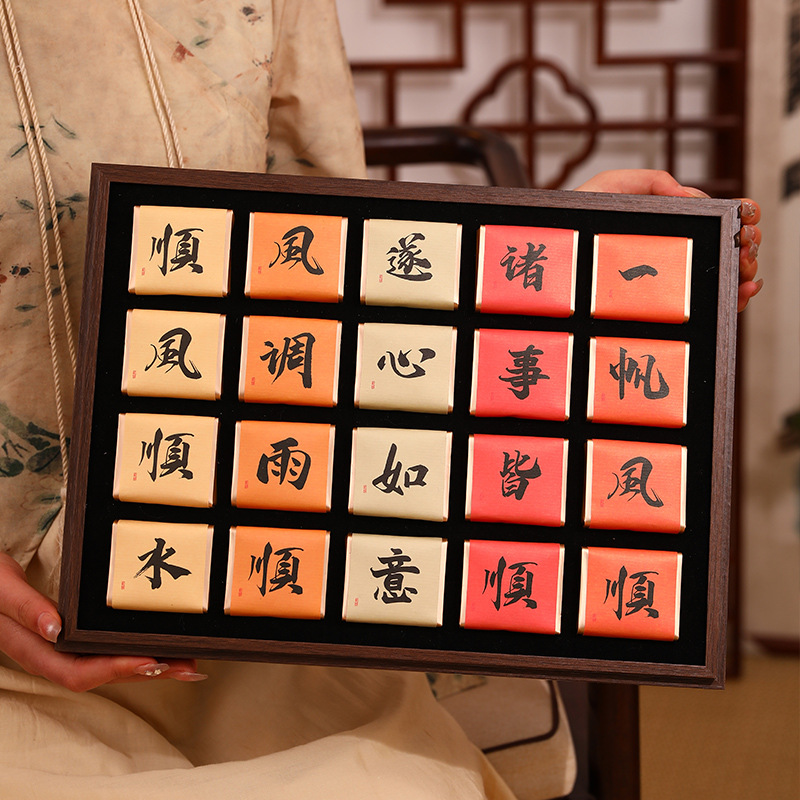 一帆風順
诸事皆順
遂心如意
風调雨順
順風順水